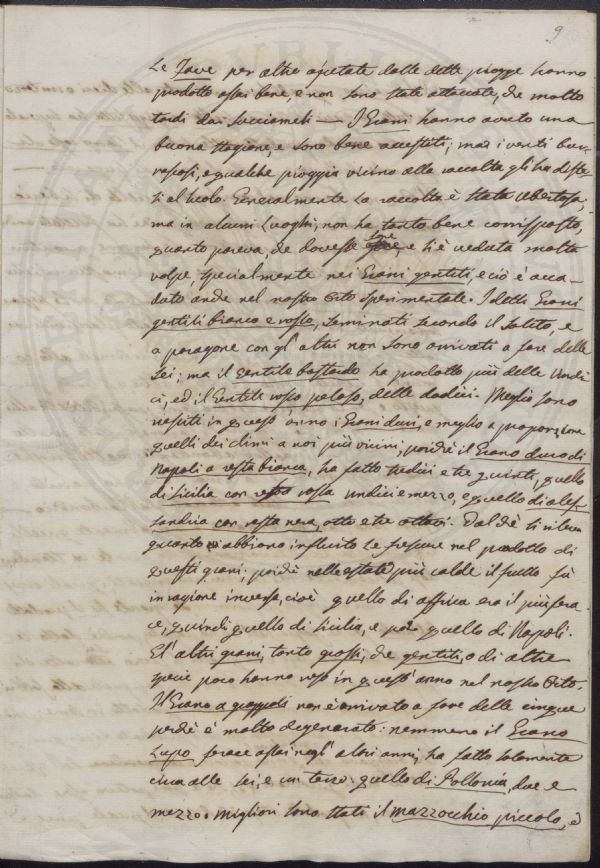 9
Le Fave per altro ajutate dalle dette piogge hanno
prodotto assai bene, e non sono state attaccate, che molto
tardi dai succiameli — I Grani hanno avuto una
buona stagione, e sono bene accestiti; ma i venti bur-
rascosi, e qualche pioggia vicino alla raccolta gli ha diste-
si al suolo. Generalmente la raccolta è stata ubertosa;
ma in alcuni luoghi, non ha tanto bene corrisposto,
quanto pareva, che dovesse fare, e si è veduta molta
volpe, specialmente nei Grani gentili, e ciò è acca-
duto anche nel nostro Orto sperimentale. I detti Grani
gentili bianco e rosso, seminati secondo il solito, e
a paragone con gl' altri non sono arrivati a fare delle
sei; ma il gentile bastardo ha prodotto più delle undi
ci, ed il Gentile rosso peloso, delle dodici. Meglio sono
riesciti in quest' anno i Grani duri, e meglio a proporzione
quelli dei climi a noi più vicini, poichè il Grano duro di
Napoli a resta bianca, ha fatto tredici e tre quinti, quello
di Sicilia con resta rossa undici e mezzo, e quello di Ales-
sandria con resta nera, otto e tre ottavi. Dal chè si rileva
quanto abbiano influito le frescure nel prodotto di
questi grani; poichè nelle estati più calde il frutto fù
in ragione inversa, cioè quello di Affrica era il più fera
ce, quindi quello di Sicilia, e poi quello di Napoli.
Gl' altri grani, tanto grossi, che gentili, o di altre
specie poco hanno reso in quest' anno nel nostro Orto.
Il Grano a grappoli non è arrivato a fare delle cinque
perchè è molto degenerato: nemmeno il Grano
Lupo ferace assai negl' altri anni, ha fatto solamente
circa alle sei, e un terzo: quello di Pollonia, due e
mezzo. migliori sono stati il mazzocchio piccolo, è